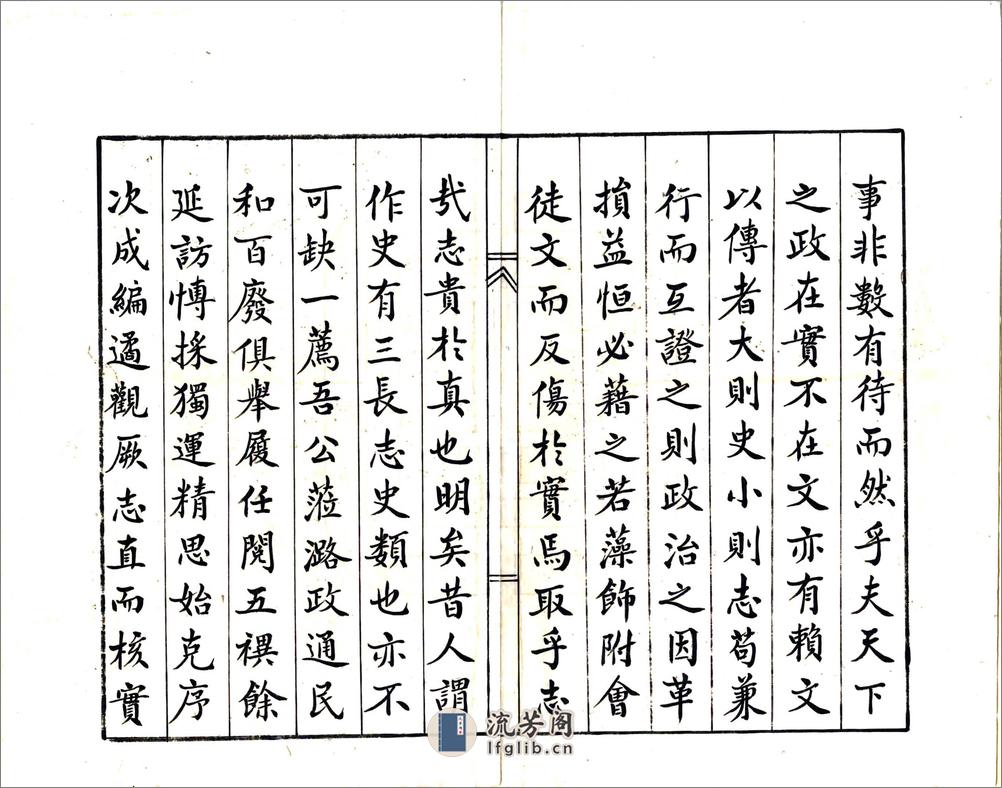 事非數有待而然乎夫天下
之政在實不在文亦有賴文
以傳者大則史小則志苟兼
行而互證之則政治之因革
損益恒必藉之若藻飾附會
徒文而反傷於實焉取乎志
㢤志貴於真也明矣昔人謂
作史有三長志史類也亦不
可缺一薦吾公蒞潞政通民
和百廢俱舉履任閱五禩餘
延訪愽採獨運精思始克序
次成編遹觀厥志直而核實
流芳阁
lfglib.cn